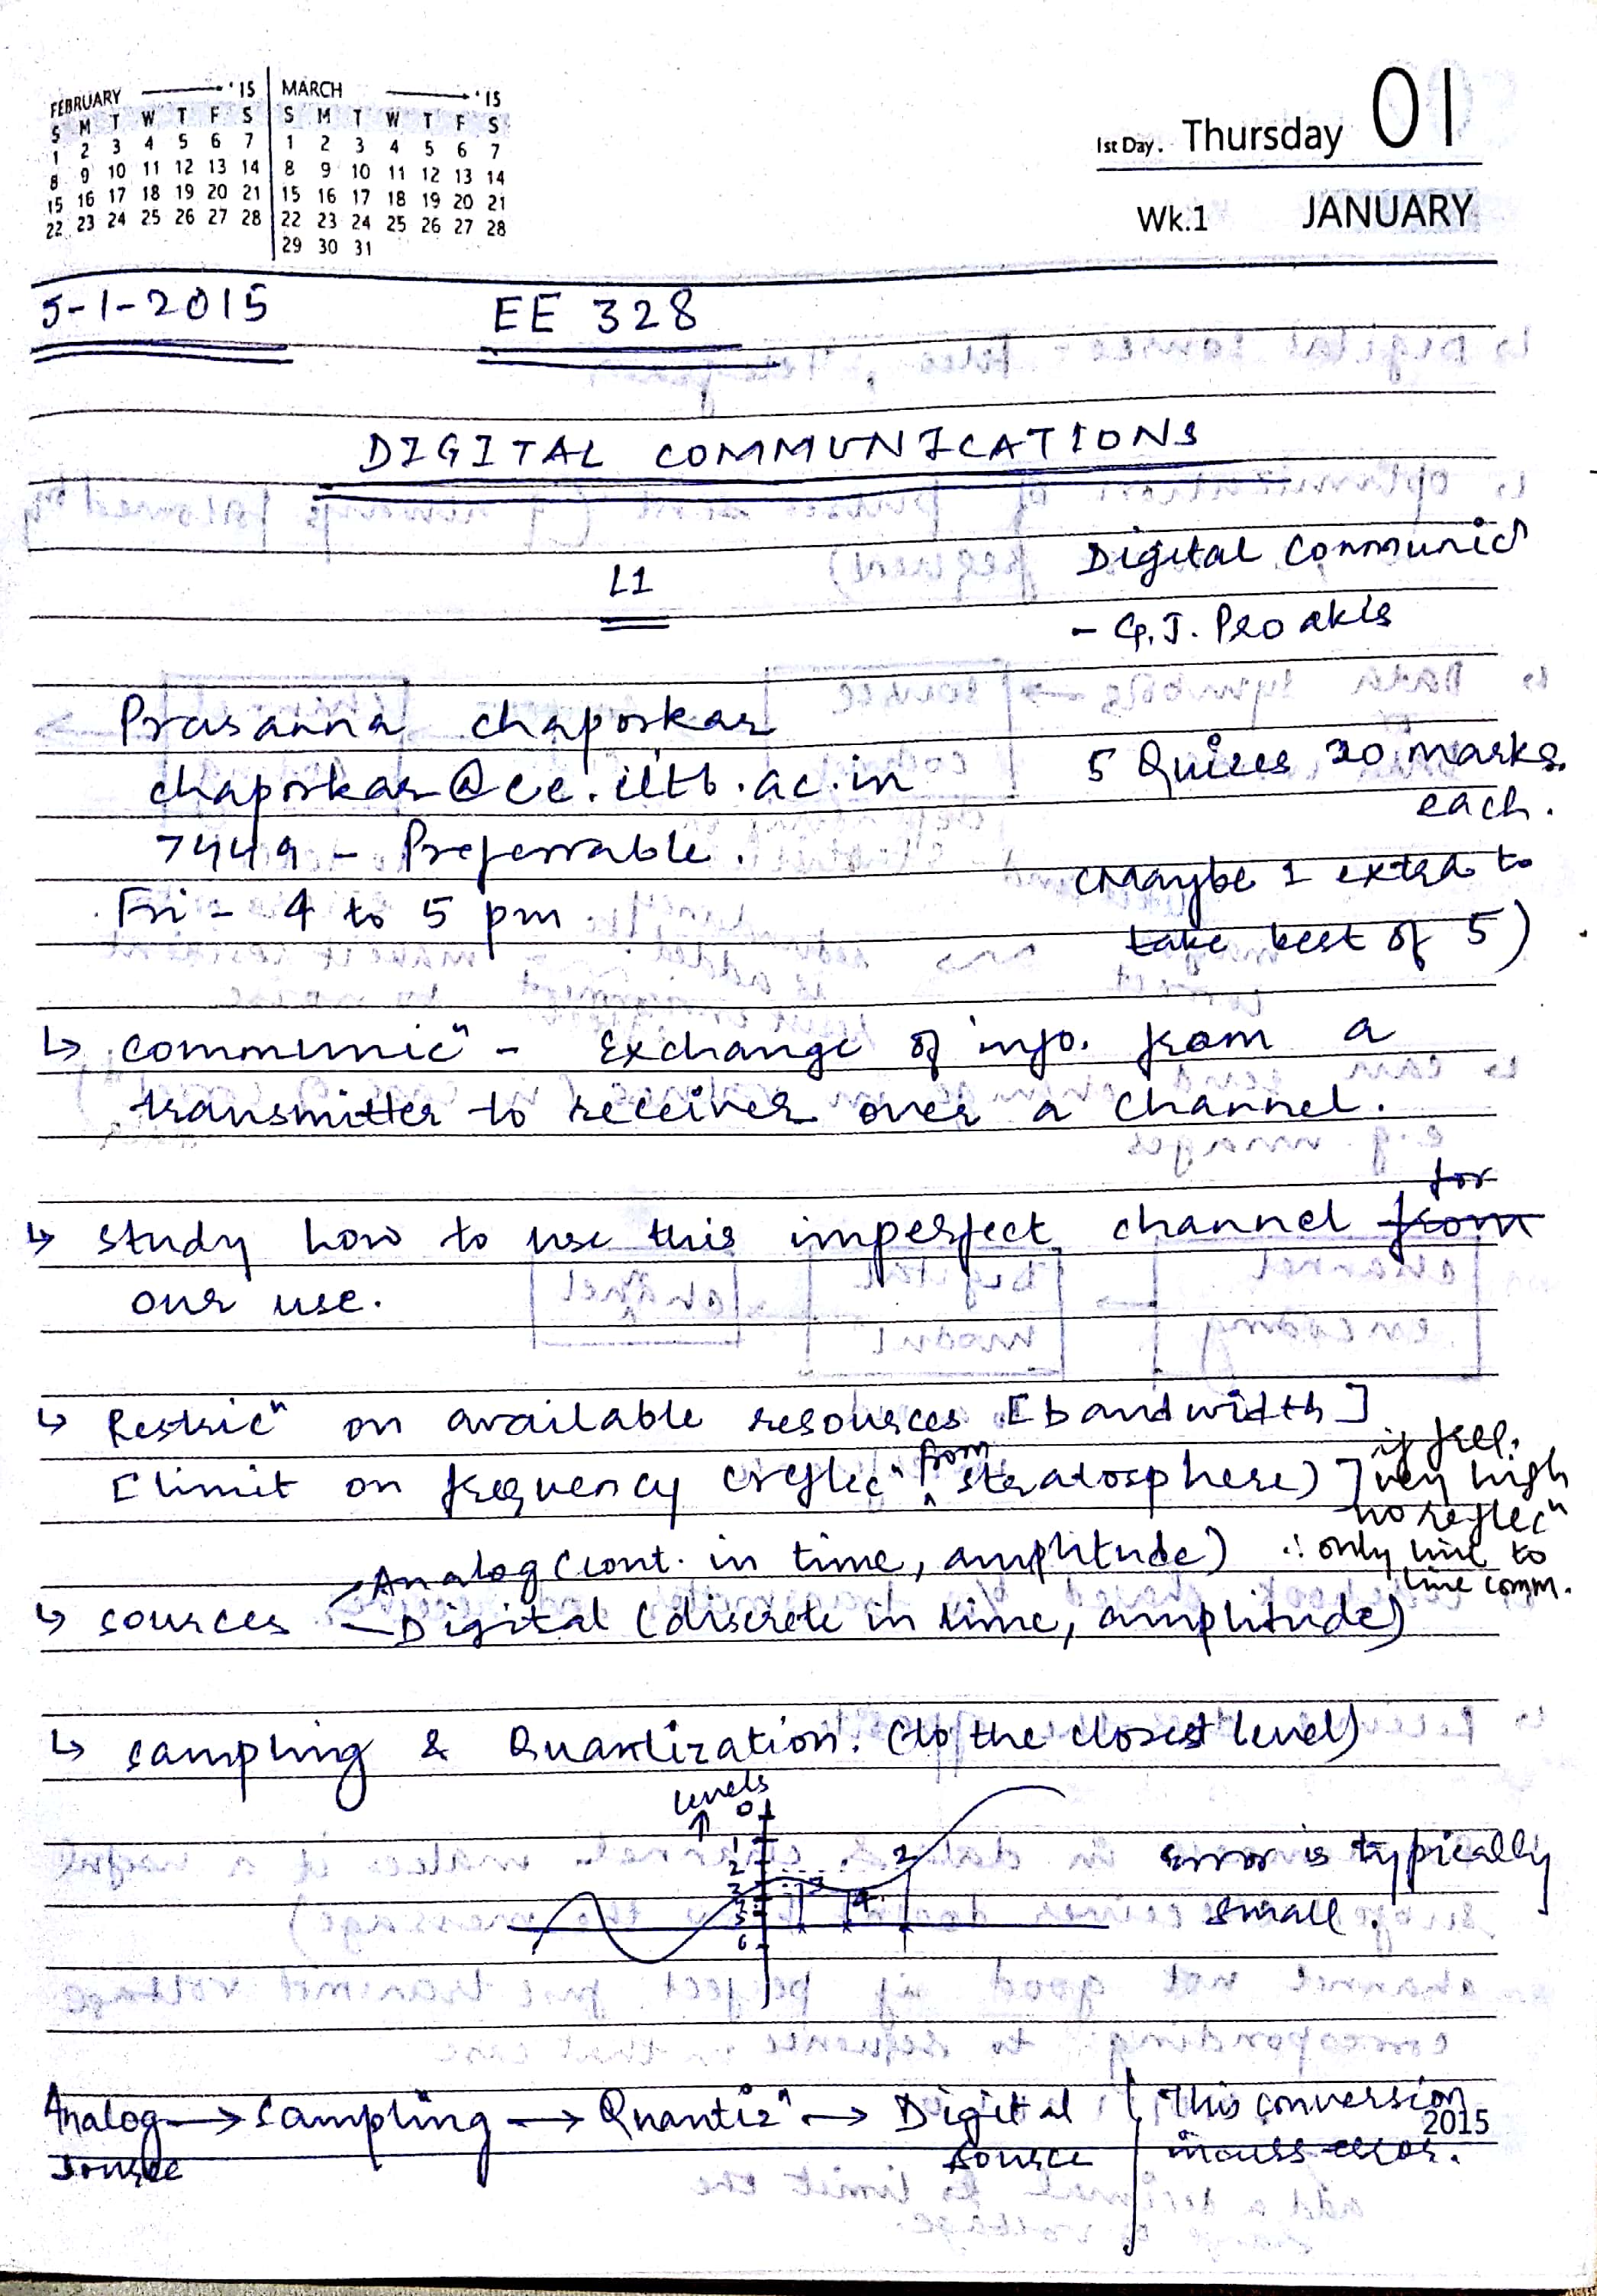 FEBRUARY '15
S M T W T F S
1 2 3 4 5 6 7
8 9 10 11 12 13 14
15 16 17 18 19 20 21
22 23 24 25 26 27 28
MARCH '15
S M T W T F S
1 2 3 4 5 6 7
8 9 10 11 12 13 14
15 16 17 18 19 20 21
22 23 24 25 26 27 28
29 30 31
1st Day. Thursday 01
Wk.1 JANUARY
5-1-2015 EE 328
DIGITAL COMMUNICATIONS
L1
Digital Communicⁿ
- G. J. Proakis
Prasanna chaporkar
chaporkar@ee.iitb.ac.in
7449 - Preferrable.
Fri - 4 to 5 pm
5 Quizes 20 marks
each.
(Maybe 1 extra to
take best of 5)
↳ communicⁿ - Exchange of info. from a
transmitter to receiver over a channel.
↳ study how to use this imperfect channel from for
our use.
↳ Restricⁿ on available resources [bandwidth]
[limit on frequency (reflecⁿ from stratosphere)]
if freq.
very high
no reflecⁿ
∴ only line to
line comm.
↳ sources
Analog (cont. in time, amplitude)
Digital (discrete in time, amplitude)
↳ sampling & Quantization. (to the closest level)
levels
↑
0
1
2
3
4
5
6
3
4
2
error is typically
small.
Analog → sampling → Quantizⁿ → Digital
source source
This conversion
incurs error.
2015